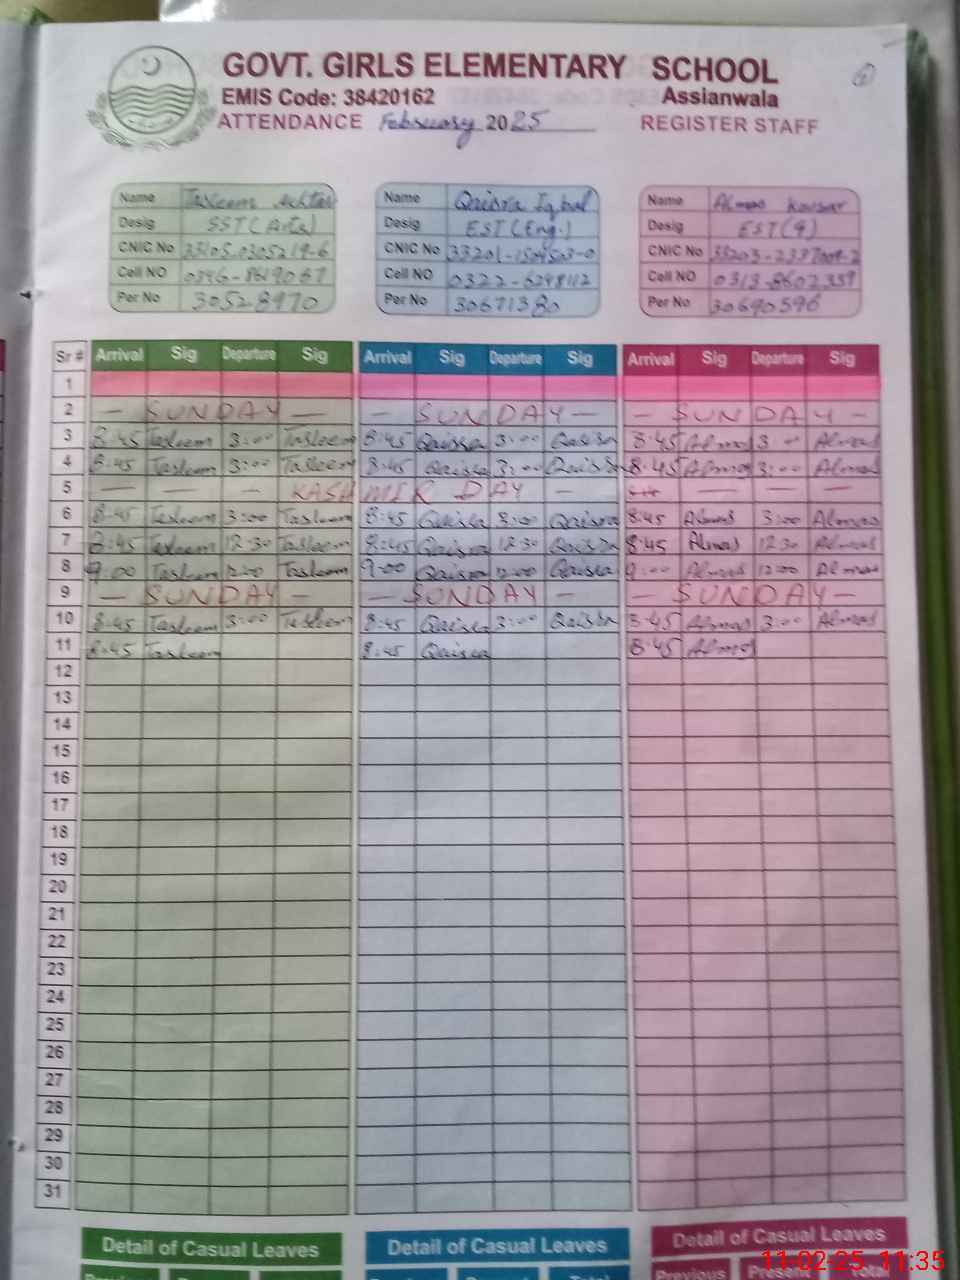 GOVT. GIRLS ELEMENTARY SCHOOL
EMIS Code: 38420162 Assianwala
ATTENDANCE February 2025 REGISTER STAFF
Name Tasleem Akhtar Name Qaisra Iqbal Name Almas Kousar
Desig SST (Arts) Desig EST (Eng.) Desig EST (9)
CNIC No CNIC No CNIC No
Cell NO 0346-8619067 Cell NO 0322-6248112 Cell NO 0313-8602359
Per No 30528970 Per No 30671380 Per No 30690596
Sr # Arrival Sig Departure Sig Arrival Sig Departure Sig Arrival Sig Departure Sig
1
2 — SUNDAY — — SUNDAY — — SUNDAY —
3 8:45 Tasleem 3:00 Tasleem 8:45 Qaisra 3:00 Qaisra 8:45 Almas 3:00 Almas
4 8:45 Tasleem 3:00 Tasleem 8:45 Qaisra 3:00 Qaisra 8:45 Almas 3:00 Almas
5 — — — KASHMIR DAY — — — —
6 8:45 Tasleem 3:00 Tasleem 8:45 Qaisra 3:00 Qaisra 8:45 Almas 3:00 Almas
7 8:45 Tasleem 12:30 Tasleem 8:45 Qaisra 12:30 Qaisra 8:45 Almas 12:30 Almas
8 9:00 Tasleem 12:00 Tasleem 9:00 Qaisra 12:00 Qaisra 9:00 Almas 12:00 Almas
9 — SUNDAY — — SUNDAY — — SUNDAY —
10 8:45 Tasleem 3:00 Tasleem 8:45 Qaisra 3:00 Qaisra 8:45 Almas 3:00 Almas
11 8:45 Tasleem 8:45 Qaisra 8:45 Almas
12
13
14
15
16
17
18
19
20
21
22
23
24
25
26
27
28
29
30
31
Detail of Casual Leaves Detail of Casual Leaves Detail of Casual Leaves
Previous Present Total
11-02-25 11:35